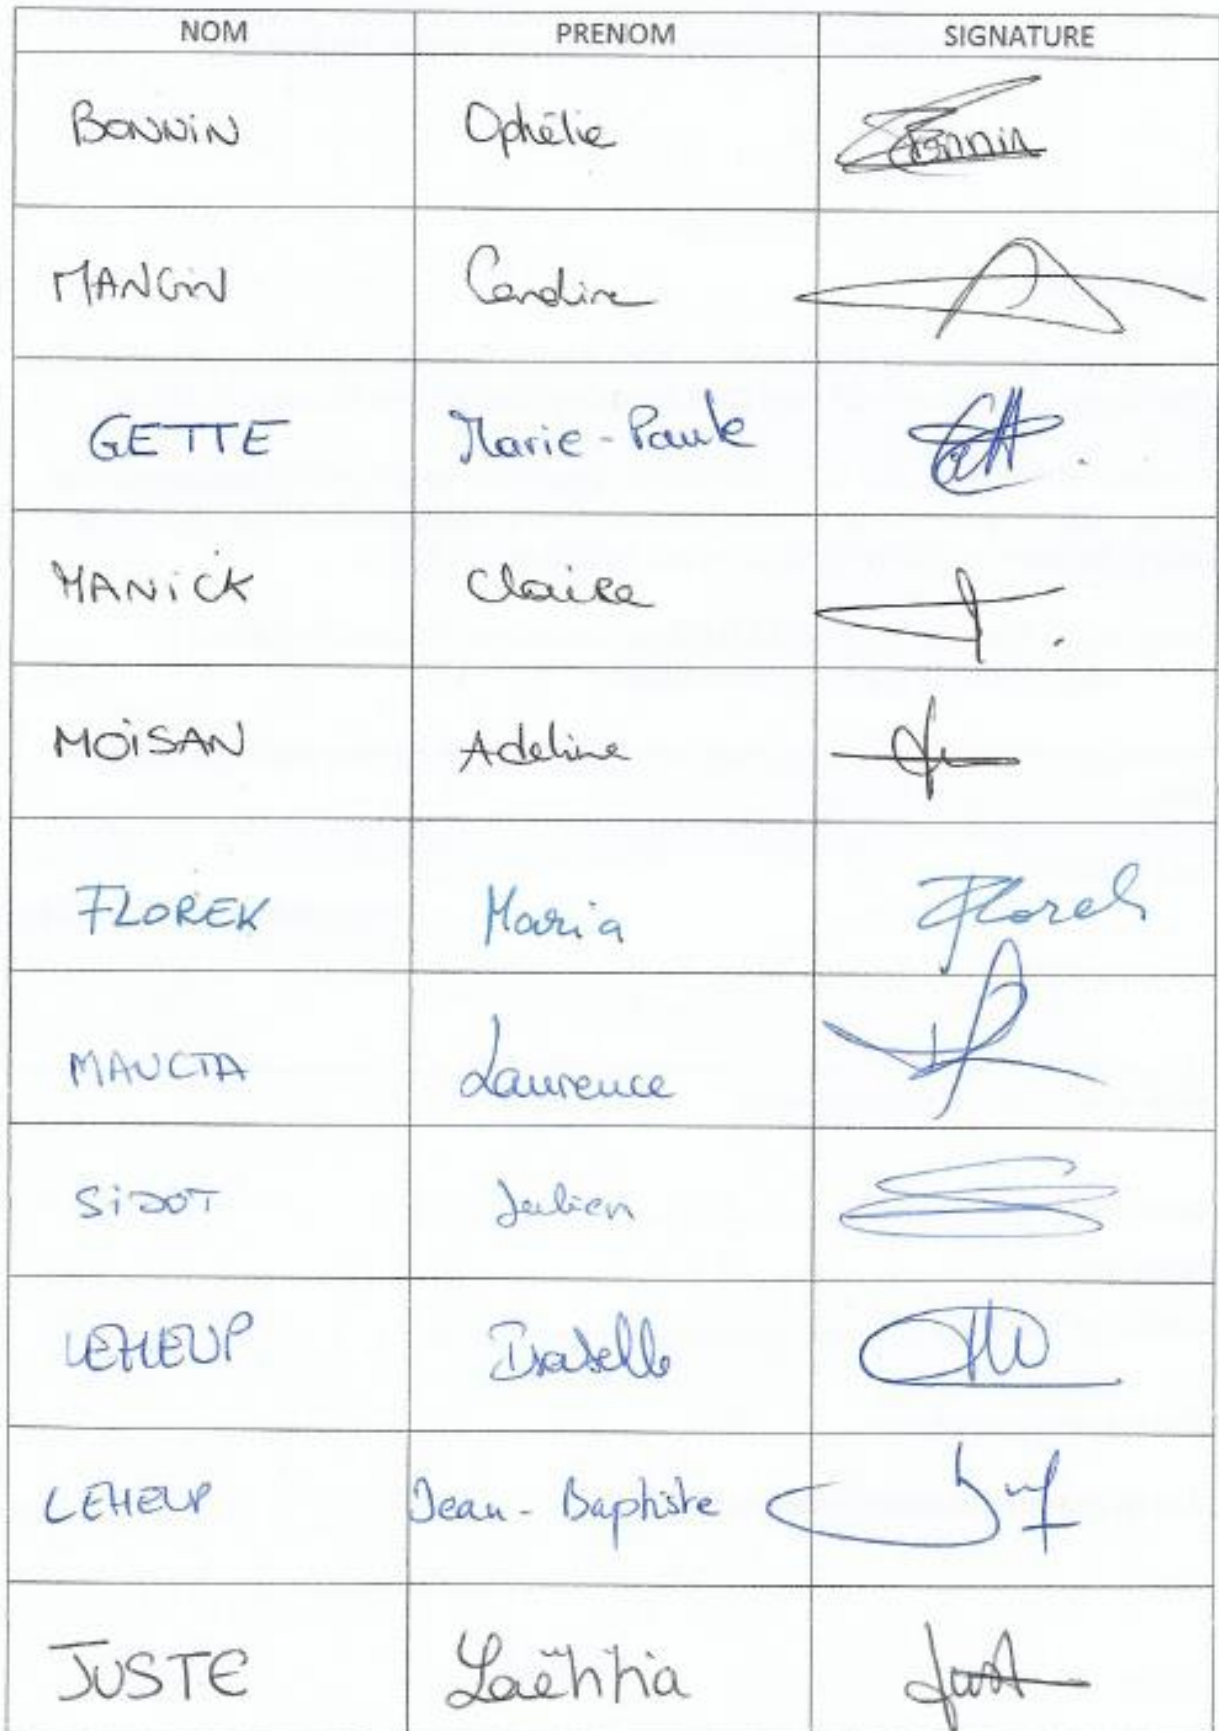 NOM PRENOM SIGNATURE
BONNIN Ophélie Bonnin
MANGIN Caroline
GETTE Marie-Paule
MANICK Claire
MOISAN Adeline
FLOREK Maria Florek
Laurence
SIDOT Julien
LEHEUP Isabelle
LEHEUP Jean-Baptiste
JUSTE Laëtitia Just